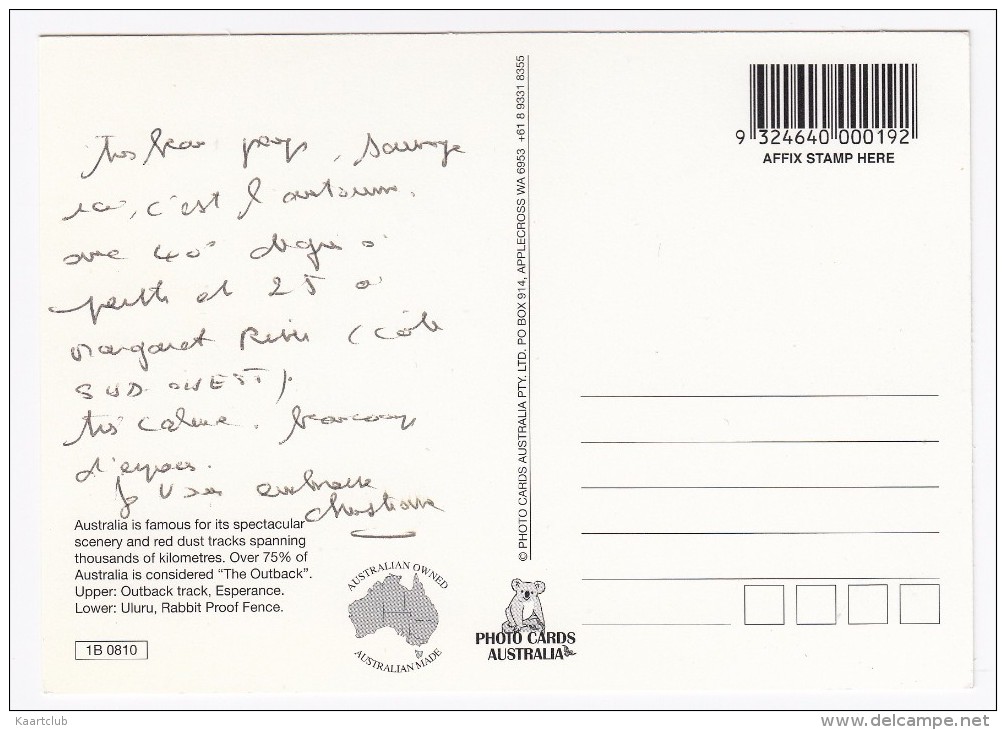 très beau pays, sauvage
ici, c'est l'automne.
avec 40° degrés à
perth et 25 à
Margaret River (côte
SUD OUEST).
très calme. beaucoup
d'espaces.
Je vous embrasse
Christiane
Australia is famous for its spectacular
scenery and red dust tracks spanning
thousands of kilometres. Over 75% of
Australia is considered “The Outback”.
Upper: Outback track, Esperance.
Lower: Uluru, Rabbit Proof Fence.
1B 0810
AUSTRALIAN OWNED
AUSTRALIAN MADE
© PHOTO CARDS AUSTRALIA PTY. LTD. PO BOX 914, APPLECROSS WA 6953 +61 8 9331 8355
PHOTO CARDS
AUSTRALIA
9 324640 000192
AFFIX STAMP HERE
Kaartclub
www.delcampe.net